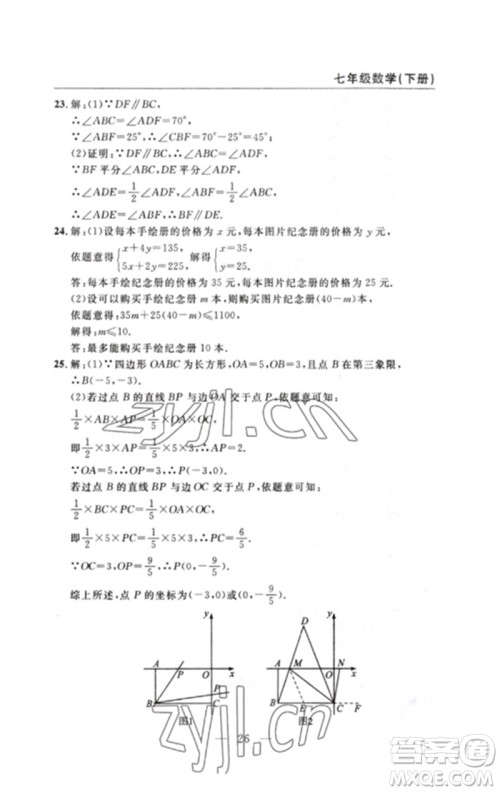 七年级数学(下册)
23.解:(1)∵DF∥BC,
∴∠ABC=∠ADF=70°,
∵∠ABF=25°,∴∠CBF=70°-25°=45°;
(2)证明:∵DF∥BC,
∴∠ABC=∠ADF,
∵BF平分∠ABC,DE平分∠ADF,
∴∠ADE=1/2∠ADF,∠ABF=1/2∠ABC,
∴∠ADE=∠ABF,∴BF∥DE.
24.解:(1)设每本手绘册的价格为x元,每本图片纪念册的价格为y元,
依题意得{x+4y=135, 5x+2y=225, 解得{x=35, y=25.
答:每本手绘纪念册的价格为35元,每本图片纪念册的价格为25元.
(2)设可以购买手绘纪念册m本,则购买图片纪念册(40-m)本,
依题意得:35m+25(40-m)≤1100,
解得:m≤10.
答:最多能购买手绘纪念册10本.
25.解:(1)∵四边形OABC为长方形,OA=5,OB=3,且点B在第三象限,
∴B(-5,-3).
(2)若过点B的直线BP与边OA交于点P,依题意可知:
1/2×AB×AP=1/5×OA×OC,
即1/2×3×AP=1/5×5×3,∴AP=2.
∵OA=5,∴OP=3,∴P(-3,0).
若过点B的直线BP与边OC交于点P,依题意可知:
1/2×BC×PC=1/5×OA×OC,
即1/2×5×PC=1/5×5×3,∴PC=6/5.
∵OC=3,∴OP=9/5,∴P(0,-9/5).
综上所述,点P的坐标为(-3,0)或(0,-9/5).
y
A P O x
B C
图1
y
D
A M O N x
B E C F
图2
26
zyjl.cn
zyjl.cn
答案圈
MXQE.COM